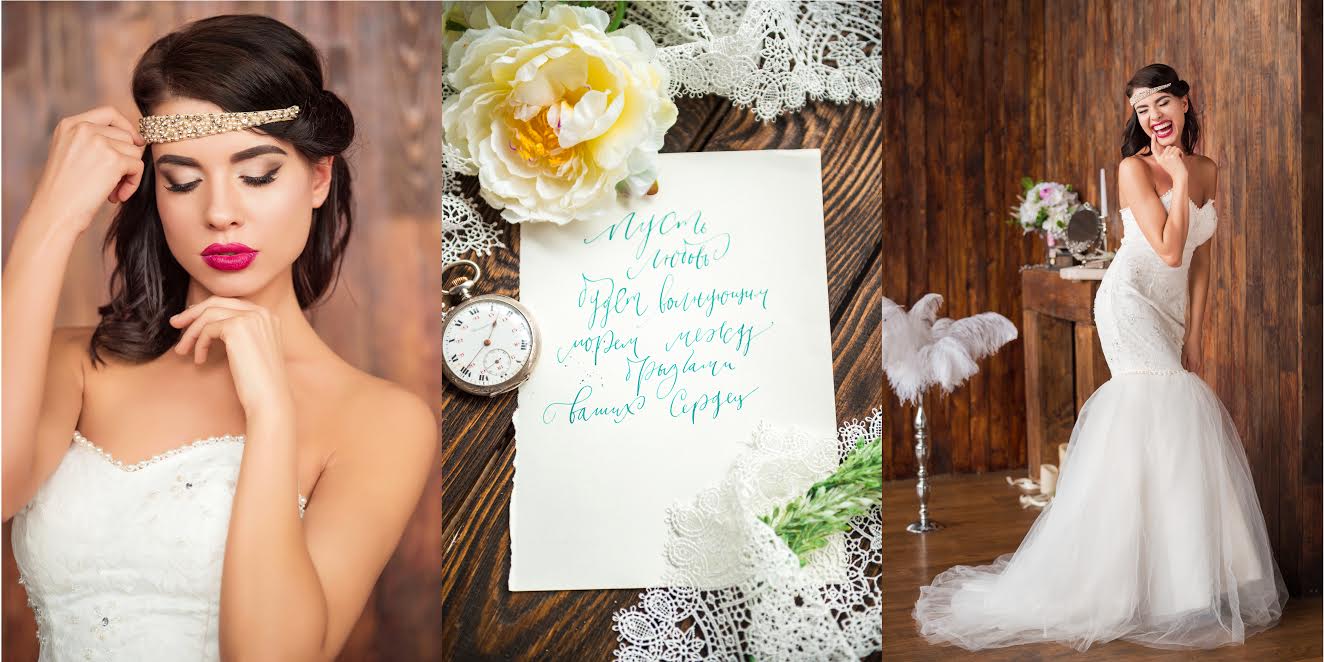 Пусть
любовь
будет волнующим
морем между
брызгами
ваших сердец